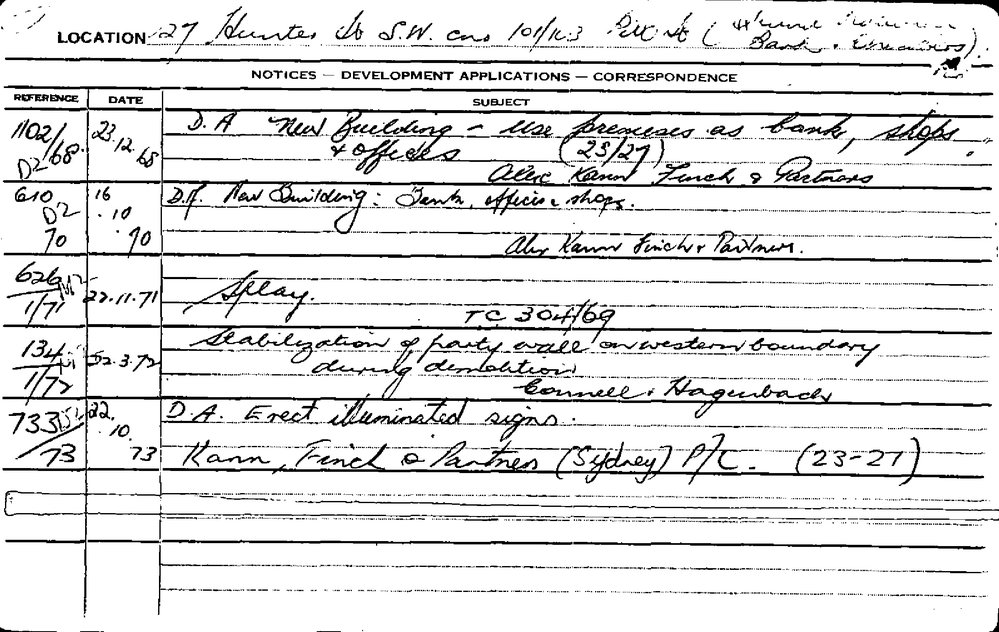 LOCATION 27 Hunter St S.W. cnr 101/103 Pitt St (
Bank . )
NOTICES — DEVELOPMENT APPLICATIONS — CORRESPONDENCE
REFERENCE DATE SUBJECT
1102/68 D2 23.12.68 D.A New Building - use premises as bank, shops
& offices (23/27)
Alec Kann Finch & Partners
610 D2 70 16.10.70 D.A. New Building: Bank, offices & shops.
Alec Kann Finch & Partners.
626 1/71 22.11.71 Splay.
TC 304/69
134 1/72 22.3.72 Stabilization of party wall on western boundary
during demolition
Connell & Hagenbach
733/73 22.10.73 D.A. Erect illuminated signs.
Kann, Finch & Partners (Sydney) P/L. (23-27)